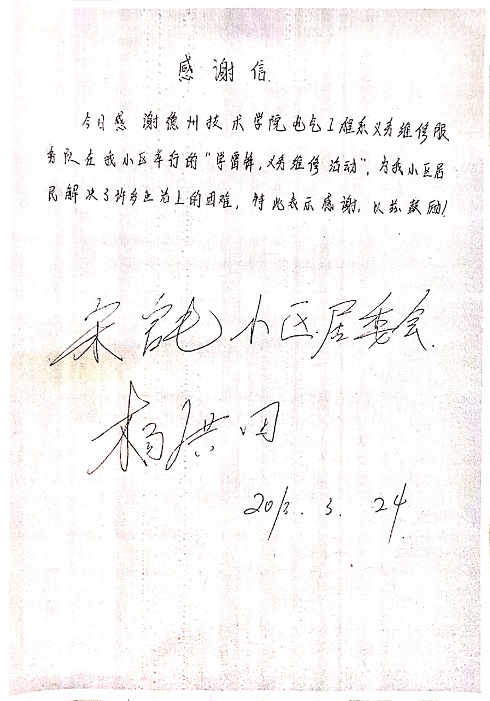 感谢信
今日感谢德州技术学院电气工程系义务维修服
务队在我小区举行的“学雷锋，义务维修活动”，为我小区居
民解决了许多生活上的困难，特此表示感谢，以兹鼓励！
宋官屯小区居委会
杨洪田
2013.3.24